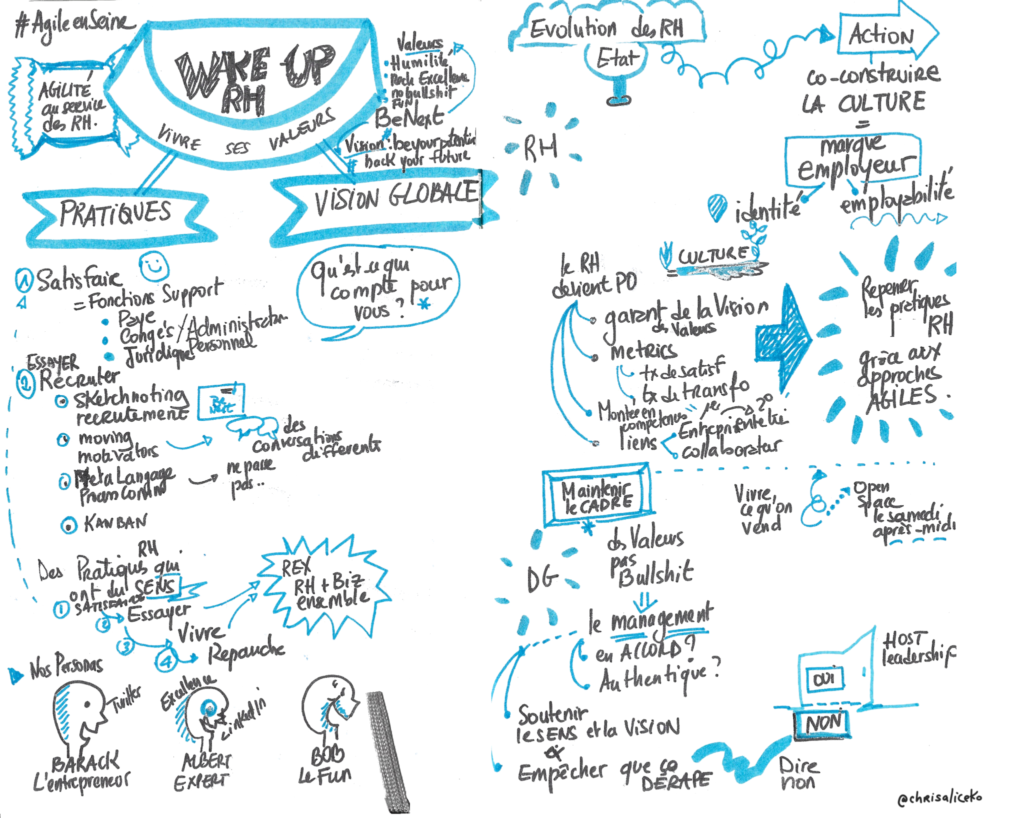 #AgileenSeine
AGILITÉ
au service
des RH.
WAKE UP
RH
VIVRE SES VALEURS
Valeurs
Humilité
Rock Excellence
no bullshit
FUN
BeNext
Vision: be your potential
hack your future
PRATIQUES
VISION GLOBALE
1 Satisfaire
= Fonctions Support
Paye
Congés / Administration
Personnel
Juridique
Qu'est ce qui
compte pour
vous ? *
ESSAYER
2 Recruter
Sketchnoting
recrutement
Be
Next
moving
motivators
des
conversations
différentes
Meta Langage
ne passe
pas..
KANBAN
Des Pratiques RH qui
ont du SENS
1 SATISFAIRE
2 Essayer
3 Vivre
4 Repauche
REX
RH + Biz
ensemble
Nos Personas
Twitter
BARACK
L'entrepreneur
Excellence
LinkedIn
ALBERT
EXPERT
BOB
Le Fun
Evolution des RH
Etat
Action
co-construire
LA CULTURE
=
marque
employeur
identité
employabilité
RH
CULTURE
le RH
devient PO
garant de la Vision
des Valeurs
Metrics
tx de satisf
tx de transfo
Montée en
compétences
liens
Entreprise
collaborateur
Repenser
les pratiques
RH
grâce aux
approches
AGILES.
Maintenir
le CADRE
*
Vivre
ce qu'on
vend
Open
Space
le samedi
après-midi
DG
des Valeurs
pas
Bullshit
le management
en ACCORD ?
Authentique ?
HOST
leadership
OUI
NON
Soutenir
le SENS et la VISION
Empêcher que ça
DÉRAPE
Dire
non
@chrisaliceko